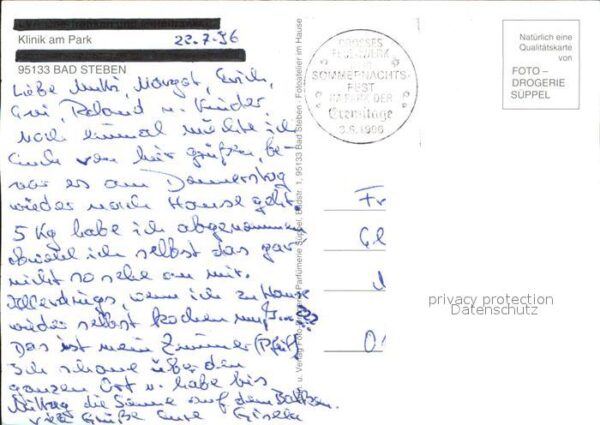 Klinik am Park
22.7.96
95133 BAD STEBEN
Liebe Mutti, Margot, Erich,
Evi, Roland u. Kinder,
noch einmal möchte ich
Euch von hier grüßen, be-
vor es am Donnerstag
wieder nach Hause geht.
5 Kg habe ich abgenommen
obwohl ich selbst das gar
nicht so sehe an mir.
Allerdings, wenn ich zu Hause
wieder selbst kochen muß ??
Das ist mein Zimmer (Pfeil)
Ich schaue über den
ganzen Ort u. habe bis
Mittag die Sonne auf dem Balkon.
Viele Grüße Eure Gisela
GROSSES
FEUERWERK
SOMMERNACHTS-
FEST
IN PARK DER
Eremitage
3.8.1996
Natürlich eine
Qualitätskarte
von
FOTO –
DROGERIE
SÜPPEL
u. Verlag Foto-Drogerie Parfümerie Süppel, Badstr. 1, 95133 Bad Steben - Fotoatelier im Hause
Fr
Gl
privacy protection
Datenschutz